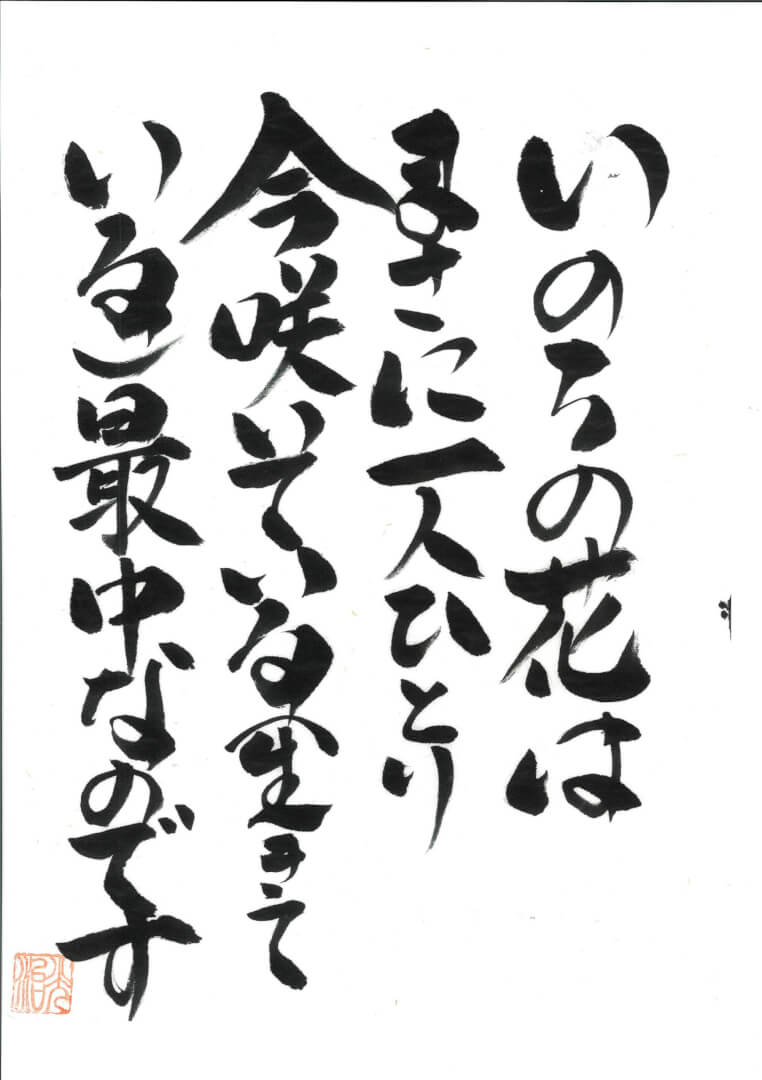 いのちの花は
まさに一人ひとり
今咲いている生きて
いる最中なのです